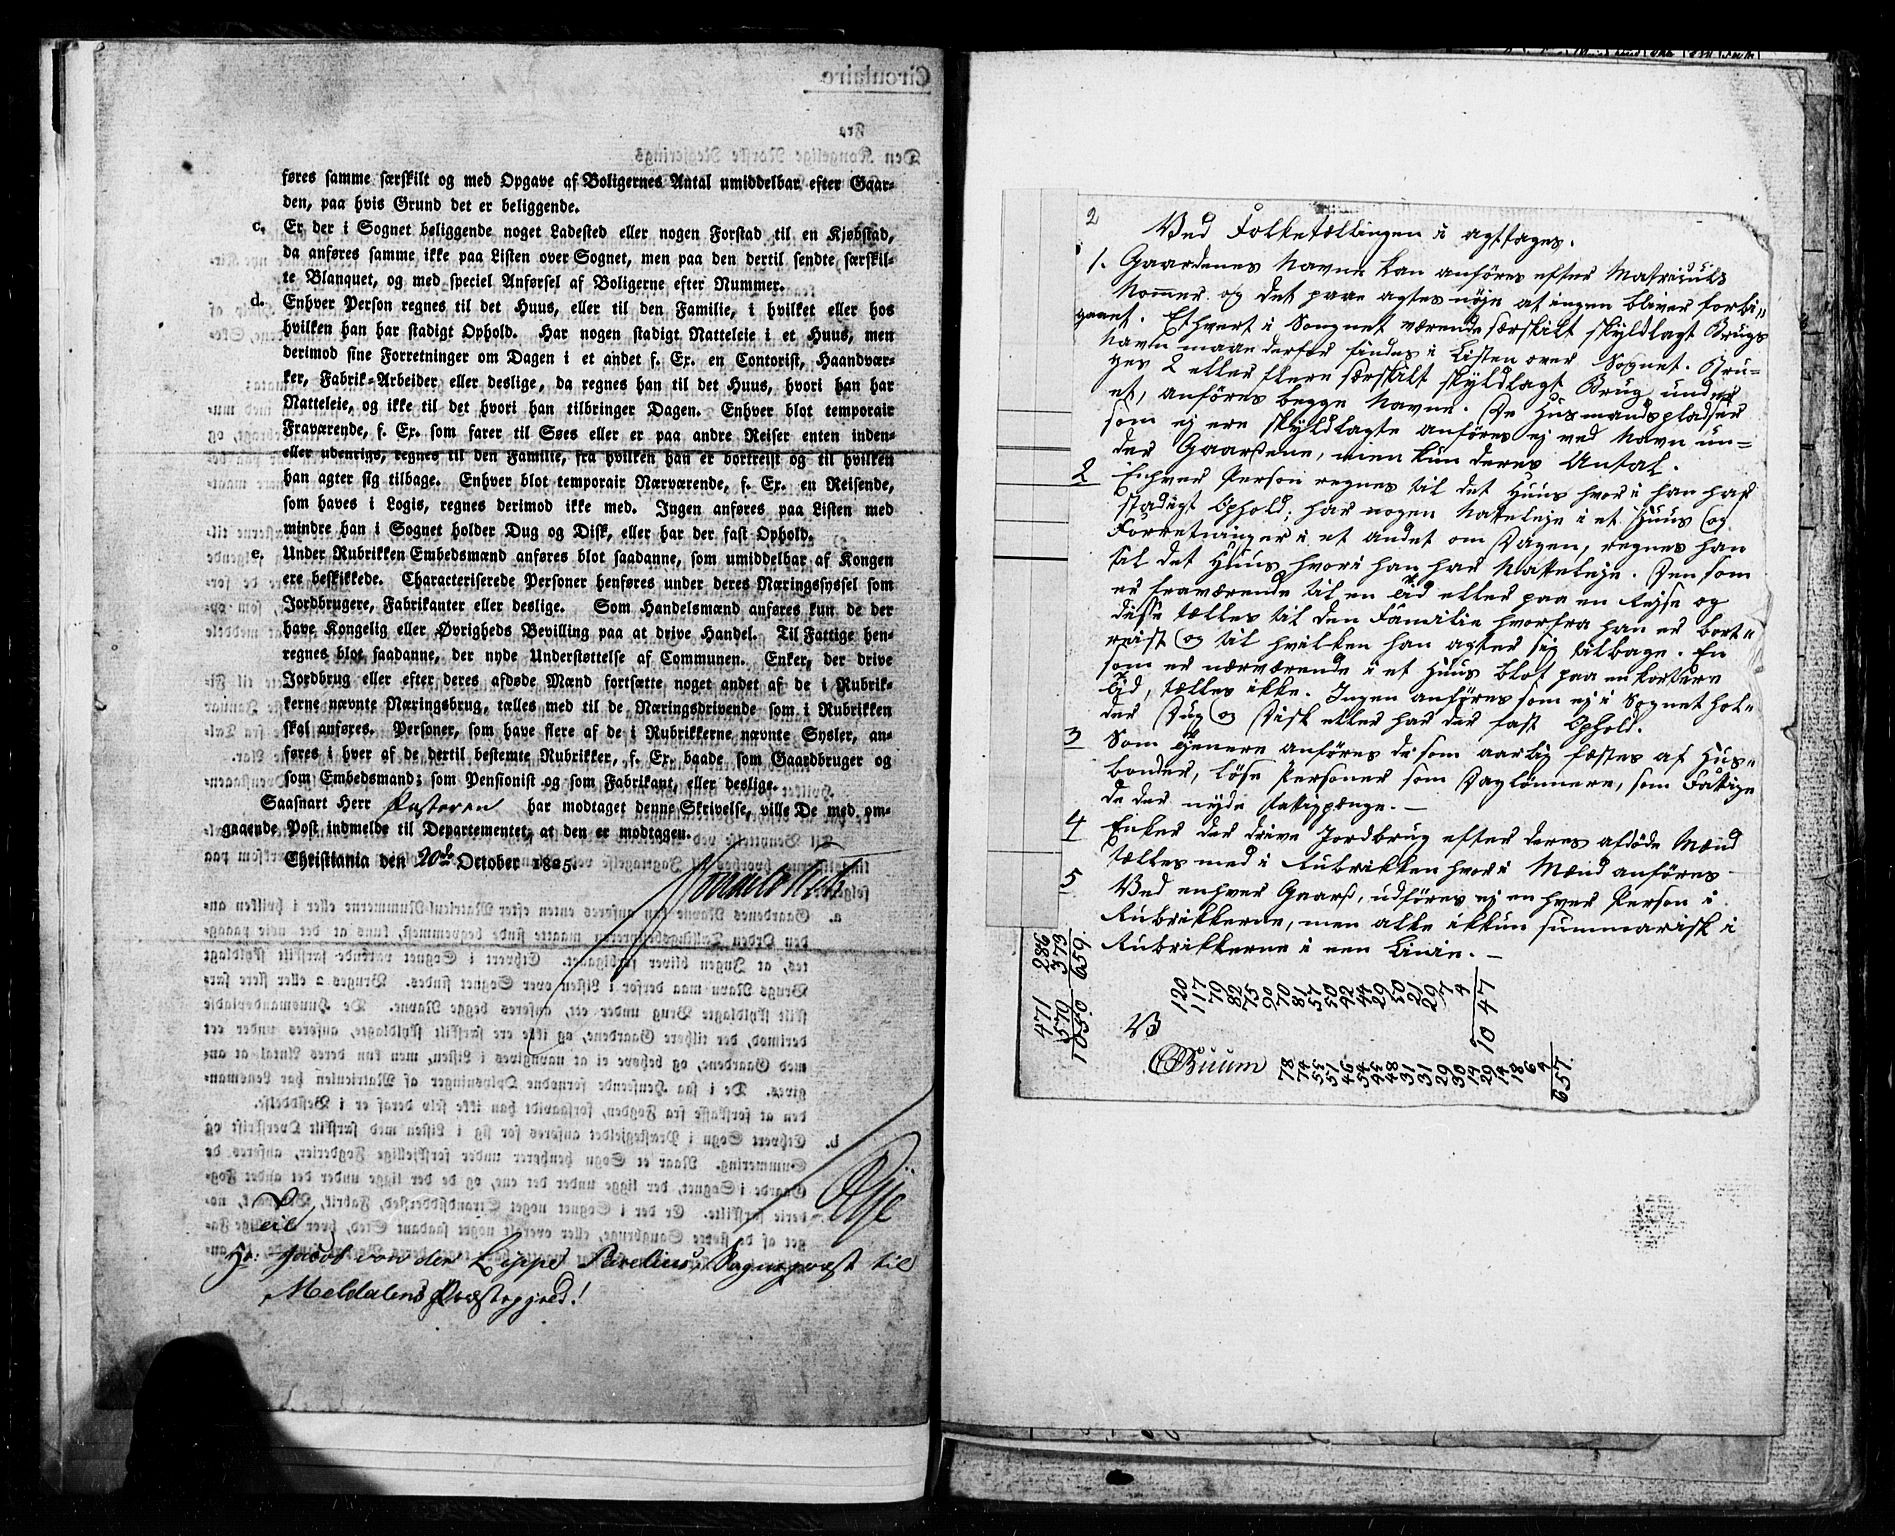 føres samme særskilt og med Opgave af Boligernes Antal umiddelbar efter Gaar-
den, paa hvis Grund det er beliggende.
c. Er der i Sognet beliggende noget Ladested eller nogen Forstad til en Kjøbstad,
da anføres samme ikke paa Listen over Sognet, men paa den dertil sendte særskil-
te Blanquet, og med speciel Anførsel af Boligerne efter Nummer.
d. Enhver Person regnes til det Huus, eller til den Familie, i hvilket eller hos
hvilken han har stadigt Ophold. Har nogen stadigt Natteleie i et Huus, men
derimod sine Forretninger om Dagen i et andet f. Ex. en Contorist, Haandvær-
ker, Fabrik-Arbeider eller deslige, da regnes han til det Huus, hvori han har
Natteleie, og ikke til det hvori han tilbringer Dagen. Enhver blot temporair
Fraværende, f. Ex. som farer til Søes eller er paa andre Reiser enten inden-
eller udenrigs, regnes til den Familie, fra hvilken han er bortreist og til hvilken
han agter sig tilbage. Enhver blot temporair Nærværende, f. Ex. en Reisende,
som haves i Logis, regnes derimod ikke med. Ingen anføres paa Listen med
mindre han i Sognet holder Dug og Disk, eller har der fast Ophold.
e. Under Rubrikken Embedsmænd anføres blot saadanne, som umiddelbar af Kongen
ere beskikkede. Characteriserede Personer henføres under deres Næringssyssel som
Jordbrugere, Fabrikanter eller deslige. Som Handelsmænd anføres kun de der
have Kongelig eller Øvrigheds Bevilling paa at drive Handel. Til Fattige hen-
regnes blot saadanne, der nyde Understøttelse af Communen. Enker, der drive
Jordbrug eller efter deres afdøde Mænd fortsætte noget andet af de i Rubrik-
kerne nævnte Næringsbrug, tælles med til de Næringsdrivende som i Rubrikken
skal anføres. Personer, som have flere af de i Rubrikkerne nævnte Sysler, an-
føres i hver af de dertil bestemte Rubrikker, f. Ex. baade som Gaardbruger og
som Embedsmand; som Pensionist og som Fabrikant, eller deslige.
Saasnart Herr Pastoren har modtaget denne Skrivelse, ville De med om-
gaaende Post indmelde til Departementet, at den er modtagen.
Christiania den 20de October 1825.
Til
Hr: Jacob von der Lippe Parelius, Sogneprest til
Meldalens Præstegjeld!
2
Ved Folketællingen i agttages.
1. Gaardenes Navne kan anføres efter Matriculs
Nommer og det paae agtes nøje at ingen bliver forbi-
gaaet. Ethvert i Sognet værende særskilt skyldlagt Brugs
Navn maae derfor findes i Listen over Sognet. Bru-
ges 2 eller flere særskilt skyldlagt Brug under
et, anføres begge Navne. De Husmandspladser
som ej ere skyldlagte anføres ej ved Navn un-
der Gaardene, men kun deres Antal.
2 Enhver Person regnes til det Huus hvori han har
stadigt Ophold; har nogen Natteleje i et Huus og
Forretninger i et andet om Dagen, regnes han
til det Huus hvori han har Natteleje. Den som
er fraværende til en Tid eller paa en Rejse og
disse tælles til den Familie hvorfra han er bort-
reist og til hvilken han agter sig tilbage. En
som er nærværende i et Huus blot paa en kortere
Tid, tælles ikke. Ingen anføres som ej i Sognet hol-
der Dug og Disk eller har der fast Ophold.
3 Som Tjenere anføres de som aarlig fæstes af Hus-
bonder, løse Personer som Daglønnere, som Fattige
de der nyde Fattigpenge.
4 Enker der drive Jordbrug efter deres afdøde Mænd
tælles med i Rubrikken hvori Mænd anføres
5 Ved enhver Gaard, udføres ej en hver Person i
Rubrikkerne, men alle ikkun summarisk i
Rubrikkerne i een Linie.
286
373
659.
471
570
1030
120
117
79
82
75
90
70
81
57
50
42
44
29
50
21
29
7
4
1047
78
74
53
51
46
54
45
48
31
31
29
30
15
29
14
18
6
4
657.